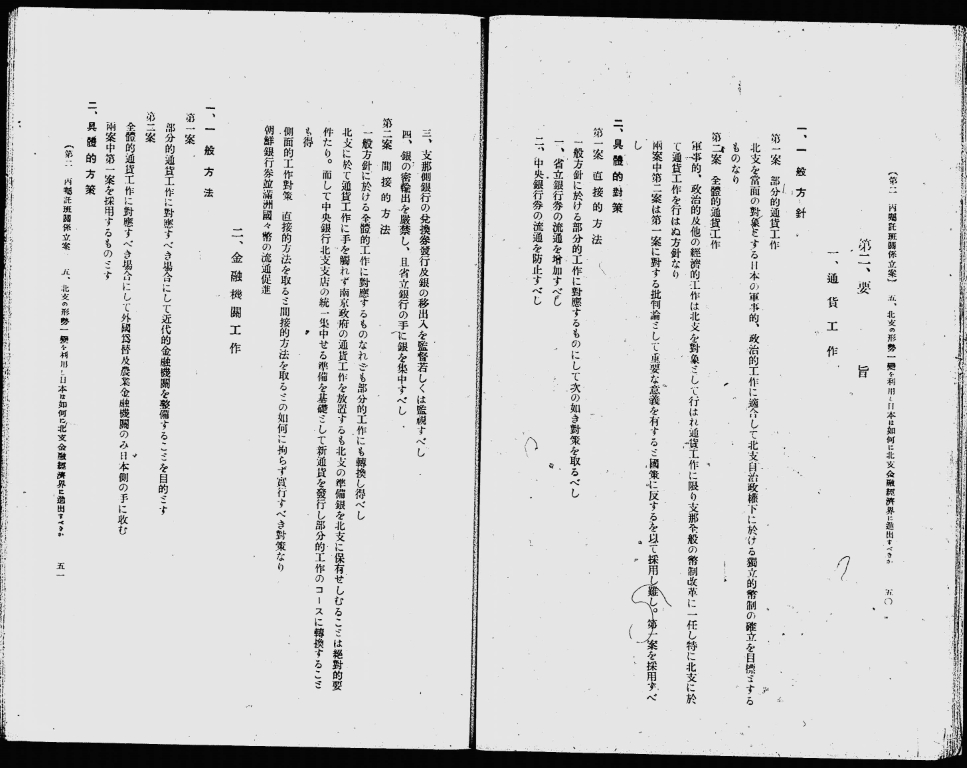 (第二 丙囑託班關係立案) 五、北支の形勢一變を利用し日本は如何に北支金融經濟界に進出すべきか 五〇
第二、要 旨
一、通 貨 工 作
一、一 般 方 針
第一案 部分的通貨工作
北支を當面の對象とする日本の軍事的、政治的工作に適合して北支自治政權下に於ける獨立的幣制の確立を目標とする
ものなり
第二案 全體的通貨工作
軍事的、政治的及他の經濟的工作は北支を對象として行はれ通貨工作に限り支那全般の幣制改革に一任し特に北支に於
て通貨工作を行はぬ方針なり
兩案中第二案は第一案に對する批判論として重要な意義を有すると國策に反するを以て採用し難し。第一案を採用すべ
し
二、具 體 的 對 策
第一案 直 接 的 方 法
一般方針に於ける部分的工作に對應するものにして次の如き對策を取るべし
一、省立銀行券の流通を增加すべし
二、中央銀行券の流通を防止すべし
三、支那側銀行の兌換券發行及銀の移出入を監督若しくは監視すべし
四、銀の密輸出を嚴禁し、且省立銀行の手に銀を集中すべし
第二案 間 接 的 方 法
一般方針に於ける全體的工作に對應するものなれども部分的工作にも轉換し得べし
北支に於て通貨工作に手を觸れず南京政府の通貨工作を放置するも北支の準備銀を北支に保有せしむることは絕對的要
件たり。而して中央銀行北支支店の統一集中せる準備を基礎として新通貨を發行し部分的工作のコースに轉換すること
も得
側面的工作對策 直接的方法を取ると間接的方法を取るとの如何に拘らず實行すべき對策なり
朝鮮銀行券並滿洲國々幣の流通促進
二、金 融 機 關 工 作
一、一 般 方 法
第一案
部分的通貨工作に對應すべき場合にして近代的金融機關を整備することを目的とす
第二案
全體的通貨工作に對應すべき場合にして外國爲替及農業金融機關のみ日本側の手に收む
兩案中第一案を採用するものとす
二、具 體 的 方 策
(第二 丙囑託班關係立案) 五、北支の形勢一變を利用し日本は如何に北支金融經濟界に進出すべきか 五一